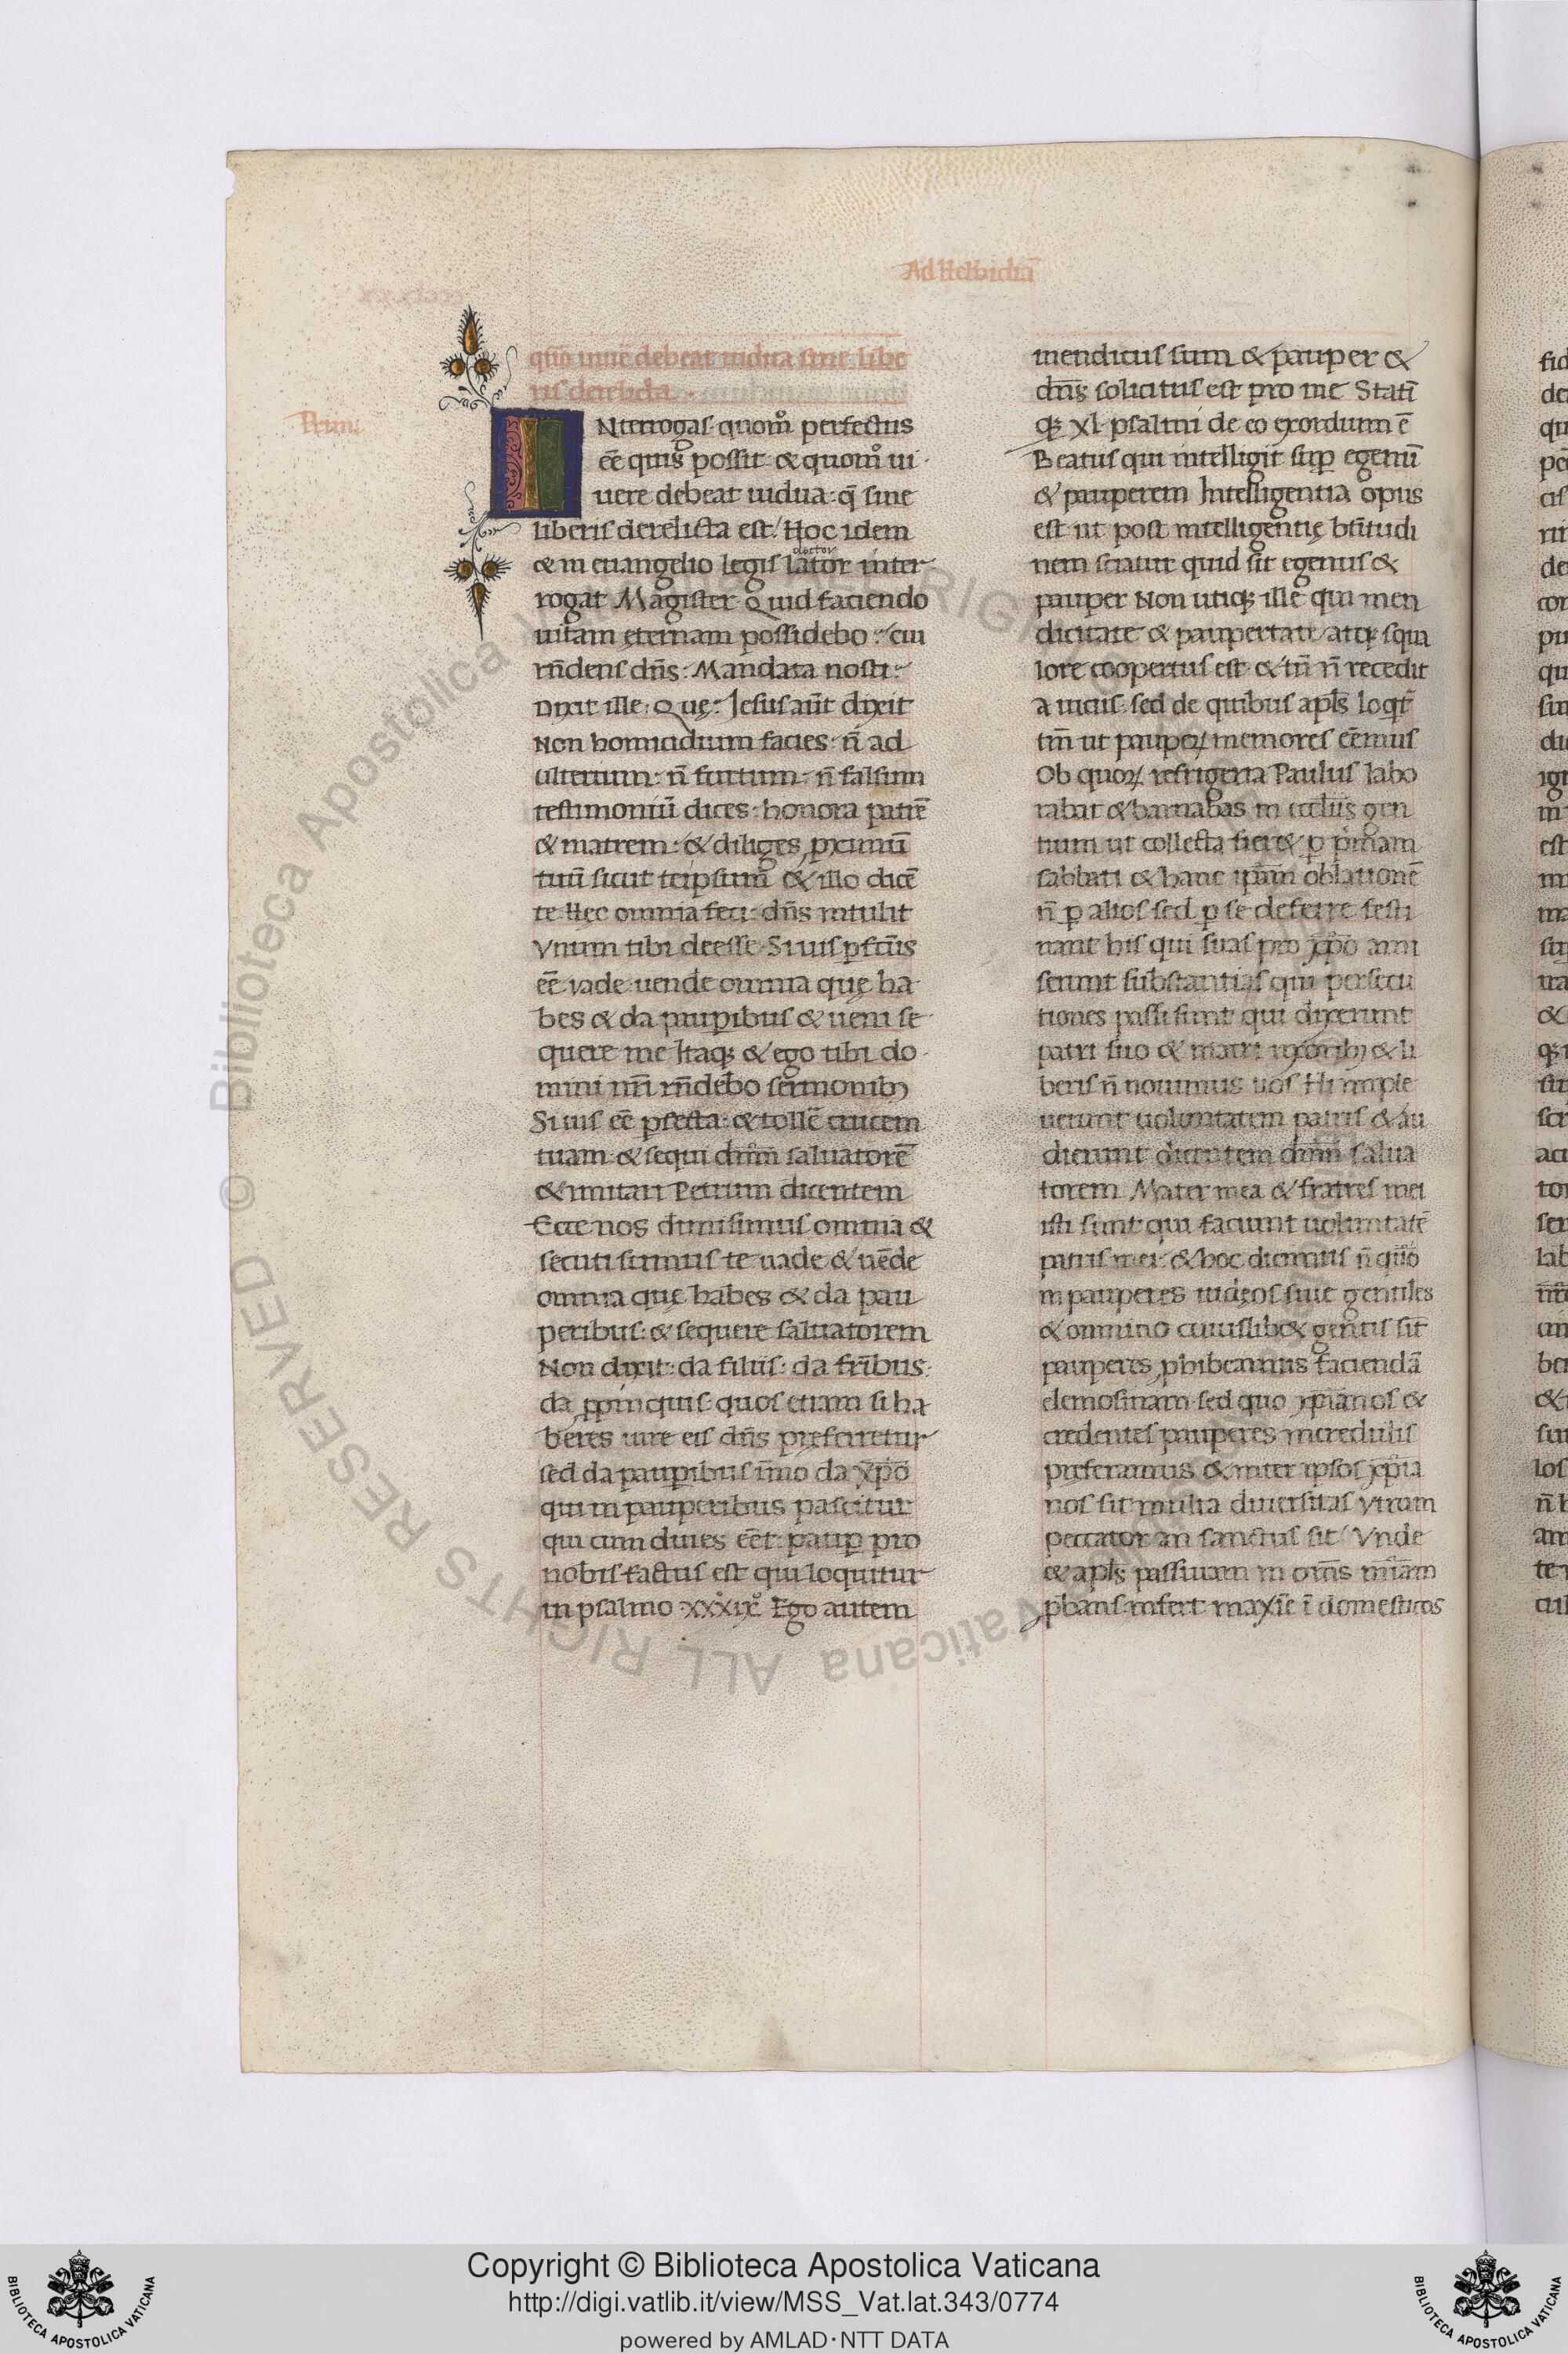 Ad Helbidiā
qūo uiuē debeat uidua sine libe
ris derelicta.
Primū
INterrogas quomͦ perfectus
eē quis possit & quomͦ ui
uere debeat uidua q̄ sine
liberis derelicta est. Hoc idem
doctor
& in euangelio legis lator inter
rogat Magister Quid faciendo
uitam ęternam possidebo. cui
rn̄dens dn̄s. Mandata nosti.
Dixit ille. Quę. Iesus aūt dixit
Non homicidium facies. n̄ ad
ulterium. n̄ furtum. n̄ falsum
testimoniū dices. honora patrē
& matrem. & diliges ꝓximū
tuū sicut teipsum & illo dicē
te Hęc omnia feci. dn̄s intulit
Vnum tibi deesse Si uis ꝑfctūs
eē vade uende omnia quę ha
bes & da pauꝑibus & ueni se
quere me Itaqꝫ & ego tibi do
mini nr̄i rn̄debo sermonibꝫ
Si uis eē ꝑfecta. & tollē crucem
tuam & sequi dn̄m saluatorē
& imitari Petrum dicentem
Ecce nos dimisimus omnia &
secuti sumus te uade & uēde
omnia quę habes & da pau
peribus. & sequere saluatorem
Non dixit. da filiis. da fr̄ibus.
da ꝓpinquis. quos etiam si ha
beres iure eis dn̄s pręferretur
sed da pauꝑibus īmo da xp̄o
qui in pauperibus pascitur
qui cum diues eēt. pauꝑ pro
nobis factus est qui loquitur
in psalmo xxxixͦ Ego autem
mendicus sum & pauper &
dn̄s solicitus est pro me Statī
qꝫ xl psalmi de eo exordium ē
Beatus qui intelligit suꝑ egenū
& pauperem Intelligentia opus
est ut post intelligentię bt̄itudi
nem sciatur quid sit egenus &
pauper Non utiqꝫ ille qui men
dicitate & paupertate atqꝫ squa
lore coopertus est & tn̄ n̄ recedit
a uiciis. sed de quibus apl̄s loqt̄
tm̄ ut pauperꝝ memores eēmus
Ob quoꝝ refrigeria Paulus labo
rabat & barnabas in eccl̄iis gen
tium ut collecta fier& ꝑ pͥmam
sabbati & hanc ip̄am oblationē
n̄ ꝑ alios sed ꝑ se deferre festi
nant his qui suas pro xp̄o ami
serunt substantias qui persecu
tiones passi sunt qui dixerunt
patri suo & matri uxoribꝫ & li
beris n̄ nouimus uos Hi imple
uerunt uoluntatem patris & au
dierunt dicentem dn̄m salua
torem Mater mea & fratres mei
isti sunt qui faciunt uoluntatē
patris mei. & hoc dicimus n̄ quo
in pauperes iudęos siue gentiles
& omnino cuiuslib& gentis sit
pauperes ꝓhibeamus faciendā
elemosinam sed quo xp̄ianos &
credentes pauperes incredulis
pręferamus & inter ipsos xp̄ia
nos sit multa diuersitas vtrum
peccator an sanctus sit Vnde
& apl̄s passiuam in om̄s mīam
ꝓbans infert maxie ī domesticos
Copyright © Biblioteca Apostolica Vaticana
http://digi.vatlib.it/view/MSS_Vat.lat.343/0774
powered by AMLAD·NTT DATA
BIBLIOTECA APOSTOLICA VATICANA
BIBLIOTECA APOSTOLICA VATICANA